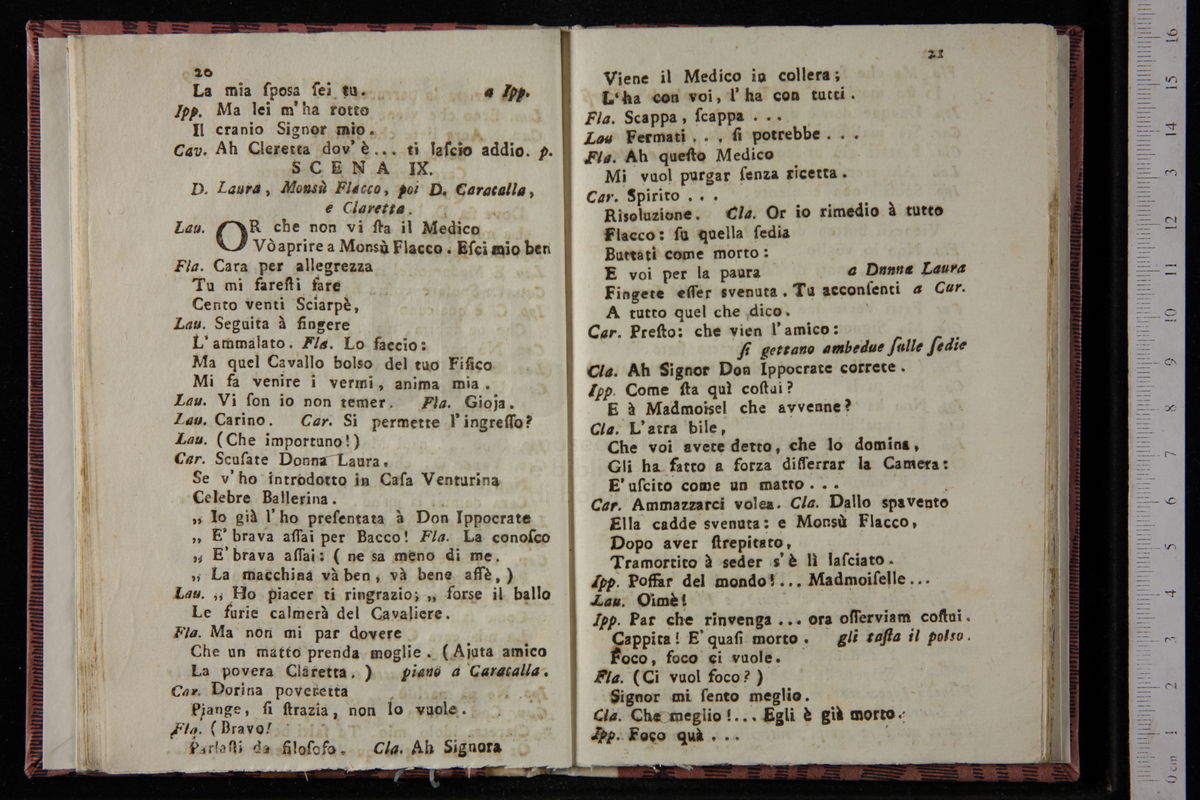 20
La mia ſpoſa ſei tu. a Ipp.
Ipp. Ma lei m'ha rotto
Il cranio Signor mio.
Cav. Ah Cleretta dov' è... ti laſcio addio. p.
SCENA IX.
D. Laura, Monsù Flacco, poi D. Caracalla,
e Claretta.
Lau. OR che non vi ſta il Medico
Vò aprire a Monsù Flacco. Eſci mio ben
Fla. Cara per allegrezza
Tu mi fareſti fare
Cento venti Sciarpè,
Lau. Seguita à fingere
L'ammalato. Fla. Lo faccio:
Ma quel Cavallo bolso del tuo Fiſico
Mi fa venire i vermi, anima mia.
Lau. Vi ſon io non temer. Fla. Gioja.
Lau. Carino. Car. Si permette l'ingreſſo?
Lau. (Che importuno!)
Car. Scuſate Donna Laura,
Se v'ho introdotto in Caſa Venturina
Celebre Ballerina.
„ Io già l'ho preſentata à Don Ippocrate
„ E' brava aſſai per Bacco! Fla. La conoſco
„ E' brava aſſai: ( ne sa meno di me.
„ La macchina và ben, và bene affè, )
Lau. „ Ho piacer ti ringrazio; „ forse il ballo
Le furie calmerà del Cavaliere.
Fla. Ma non mi par dovere
Che un matto prenda moglie. (Ajuta amico
La povera Claretta. ) piano a Caracalla.
Car. Dorina poveretta
Piange, ſi ſtrazia, non lo vuole.
Fla. (Bravo!
Parlaſti da filoſofo. Cla. Ah Signora
21
Viene il Medico in collera;
L'ha con voi, l'ha con tutti.
Fla. Scappa, ſcappa ...
Lau Fermati ... ſi potrebbe ...
Fla. Ah queſto Medico
Mi vuol purgar ſenza ricetta.
Car. Spirito ...
Risoluzione. Cla. Or io rimedio à tutto
Flacco: ſu quella ſedia
Buttati come morto:
E voi per la paura a Dnnna Laura
Fingete eſſer svenuta. Tu acconſenti a Car.
A tutto quel che dico.
Car. Preſto: che vien l'amico:
ſi gettano ambedue ſulle ſedie
Cla. Ah Signor Don Ippocrate correte.
Ipp. Come ſta quì coſtui?
E à Madmoisel che avvenne?
Cla. L'atra bile,
Che voi avete detto, che lo domina,
Gli ha fatto a forza diſſerrar la Camera:
E' uſcito come un matto ...
Car. Ammazzarci volea. Cla. Dallo spavento
Ella cadde svenuta: e Monsù Flacco,
Dopo aver ſtrepitato,
Tramortito à seder s'è lì laſciato.
Ipp. Poſſar del mondo!... Madmoiſelle...
Lau. Oimè!
Ipp. Par che rinvenga ... ora oſſerviam coſtui.
Cappita! E' quaſi morto. gli taſta il polso.
Foco, foco ci vuole.
Fla. (Ci vuol foco?)
Signor mi ſento meglio.
Cla. Che meglio!... Egli è già morto.
Ipp. Foco quà ...